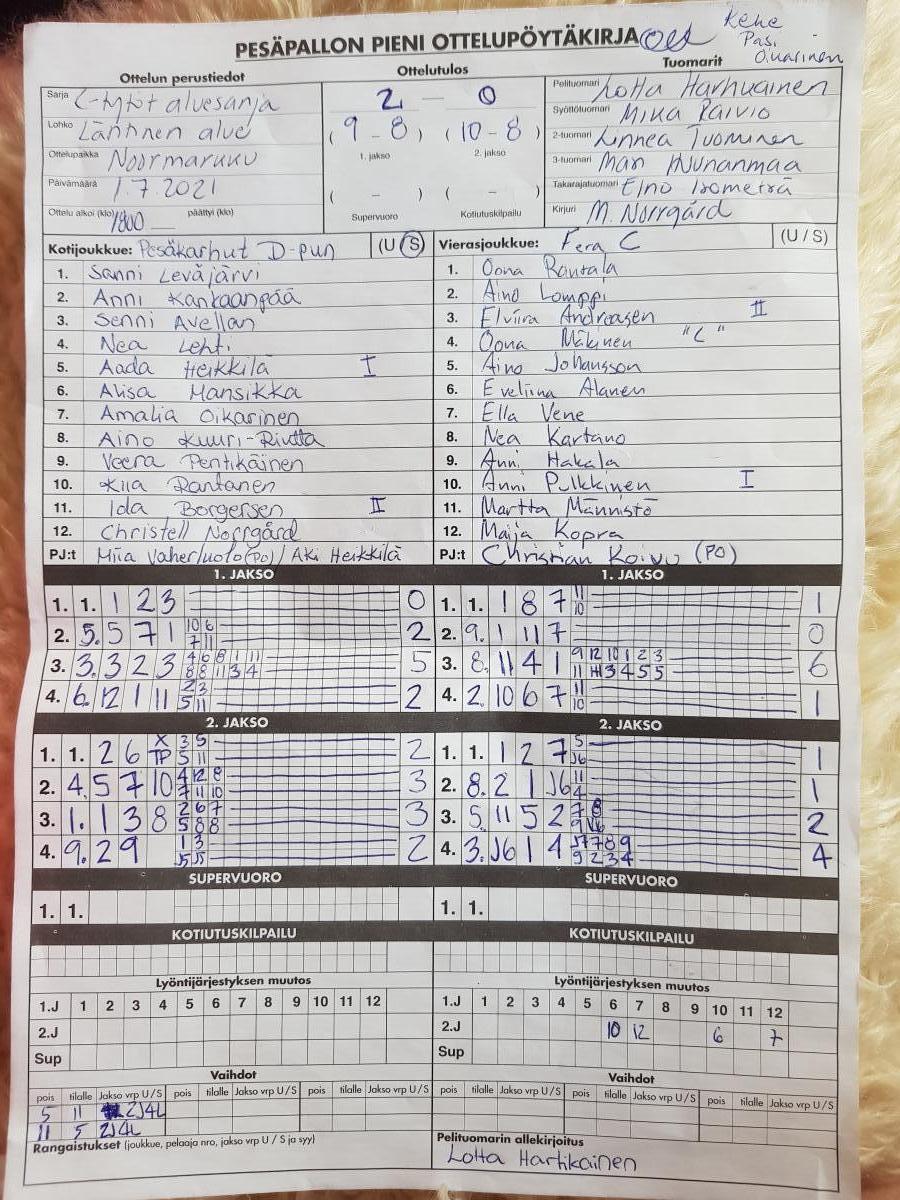 Kehe
PESÄPALLON PIENI OTTELUPÖYTÄKIRJA
Pasi
Ottelun perustiedot Ottelutulos Tuomarit
Sarja C-tytöt aluesarja
Lohko Läntinen alue
Ottelupaikka Noormarkku
Päivämäärä 1.7.2021
Ottelu alkoi (klo) 1800 päättyi (klo)
2 - 0
(9 - 8) (10 - 8)
1. jakso 2. jakso
( - ) ( - )
Supervuoro Kotiutuskilpailu
Pelituomari Lotta Harhuainen
Syöttötuomari Mika Päiviö
2-tuomari Linnea Tuominen
3-tuomari Mari Huunanmaa
Takarajatuomari Eino Isometsä
Kirjuri M. Norrgård
Kotijoukkue: Pesäkarhut D-pun (U / S)
1. Sanni Leväjärvi
2. Anni Kankaanpää
3. Senni Avellan
4. Nea Lehti
5. Aada Heikkilä I
6. Alisa Mansikka
7. Amalia Oikarinen
8. Aino Kuuri-Riutta
9. Veera Pentikäinen
10. Kiia Rantanen
11. Ida Borgersen II
12. Christell Norrgård
PJ:t Miia Vaherluoto (PO) / Aki Heikkilä
Vierasjoukkue: Fera C (U / S)
1. Oona Rantala
2. Aino Lomppi
3. Elviira Andreasen II
4. Oona Mäkinen "C"
5. Aino Johansson
6. Eveliina Alanen
7. Ella Vene
8. Nea Kartano
9. Anni Hakala
10. Anni Pulkkinen I
11. Martta Männistö
12. Maija Kopra
PJ:t Christian Koivu (PO)
1. JAKSO
1. 1. 1 2 3 0
2. 5. 5 7 1 10 6 2
7 11
3. 3. 3 2 3 4 6 8 1 11 5
8 8 11 3 4
4. 6. 12 1 11 2 3 2
5 11
1. JAKSO
1. 1. 1 8 7 11 1
10
2. 9. 1 11 7 0
3. 8. 11 4 1 9 12 10 1 2 3 6
11 3 4 5 5
4. 2. 10 6 7 11 1
10
2. JAKSO
1. 1. 2 6 X 3 5 2
TP 5 11
2. 4. 5 7 10 4 12 8 3
7 11 10
3. 1. 1 3 8 2 6 7 3
5 8 8
4. 9. 2 9 1 3 2
J5 J5
2. JAKSO
1. 1. 1 2 7 5 1
J6
2. 8. 2 1 J6 11 1
4
3. 5. 11 5 2 7 8 2
9
4. 3. J6 1 4 J7 7 8 9 4
9 2 3 4
SUPERVUORO
1. 1.
SUPERVUORO
1. 1.
KOTIUTUSKILPAILU
KOTIUTUSKILPAILU
Lyöntijärjestyksen muutos
1.J 1 2 3 4 5 6 7 8 9 10 11 12
2.J
Sup
Lyöntijärjestyksen muutos
1.J 1 2 3 4 5 6 7 8 9 10 11 12
2.J 10 12 6 7
Sup
Vaihdot
pois tilalle Jakso vrp U / S pois tilalle Jakso vrp U / S pois tilalle Jakso vrp U / S
5 11 2J4L
11 5 2J4L
Vaihdot
pois tilalle Jakso vrp U / S pois tilalle Jakso vrp U / S pois tilalle Jakso vrp U / S
Rangaistukset (joukkue, pelaaja nro, jakso vrp U / S ja syy)
Pelituomarin allekirjoitus
Lotta Hartikainen